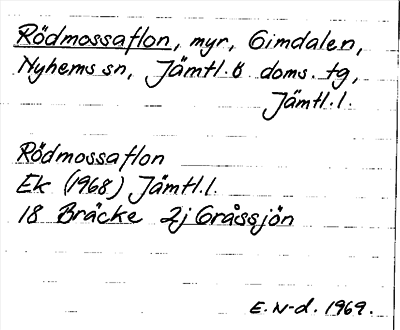 Rödmossaflon, myr, Gimdalen,
Nyhems sn, Jämtl. ö doms. tg,
Jämtl. l.
Rödmossaflon
Ek (1968) Jämtl. l.
18 Bräcke 2j Gråssjön
E. N-d. 1969.